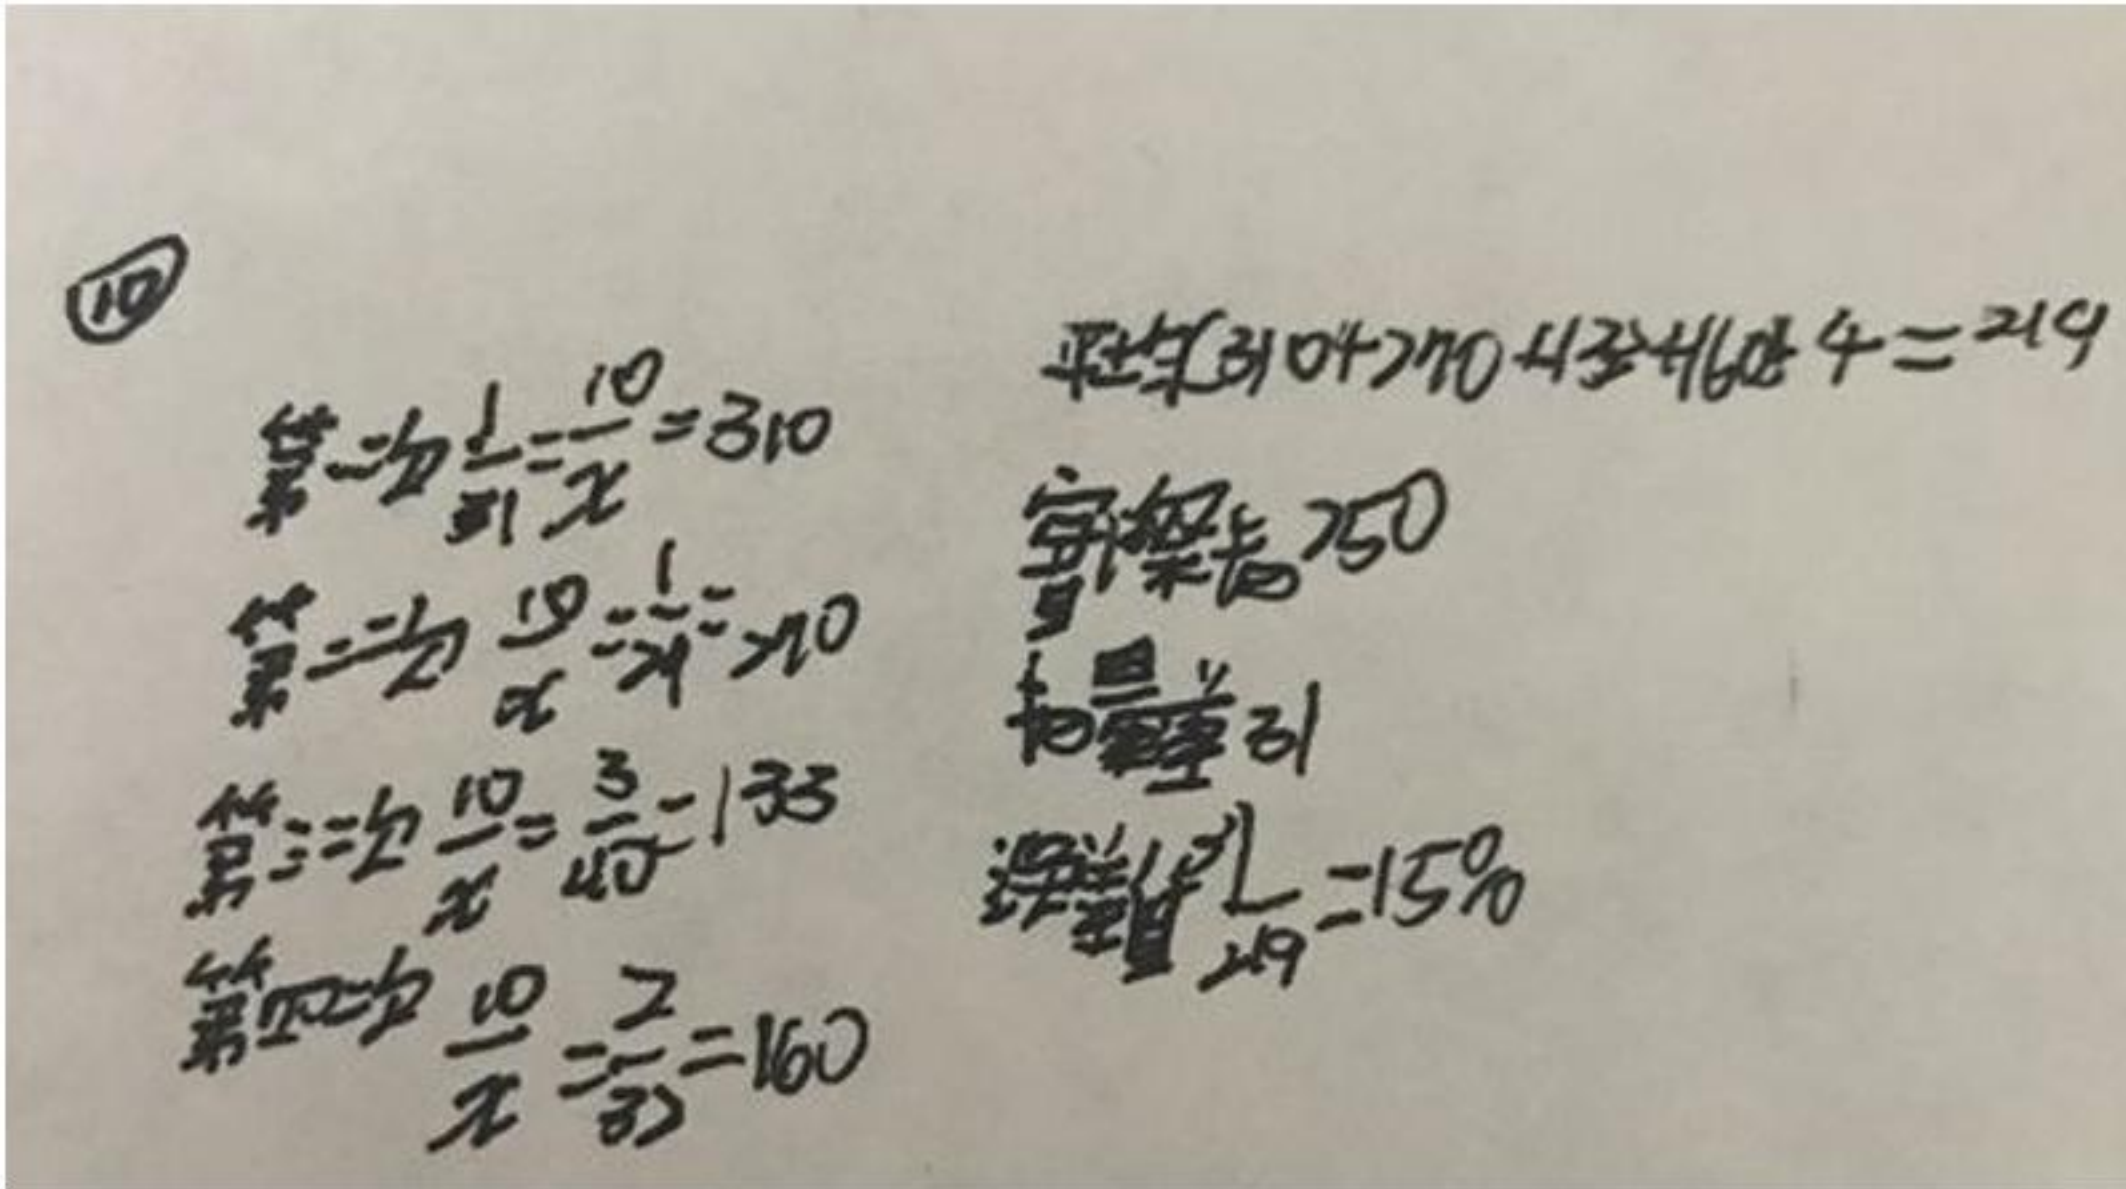 ⑩
第一次 1/31 = 10/x = 310
第二次 10/x = 1/27 = 270
第三次 10/x = 3/40 = 133
第四次 10/x = 2/32 = 160
平均(310+270+133+160)÷4=219
实际 250
相差 31
误差 31/219 = 15%